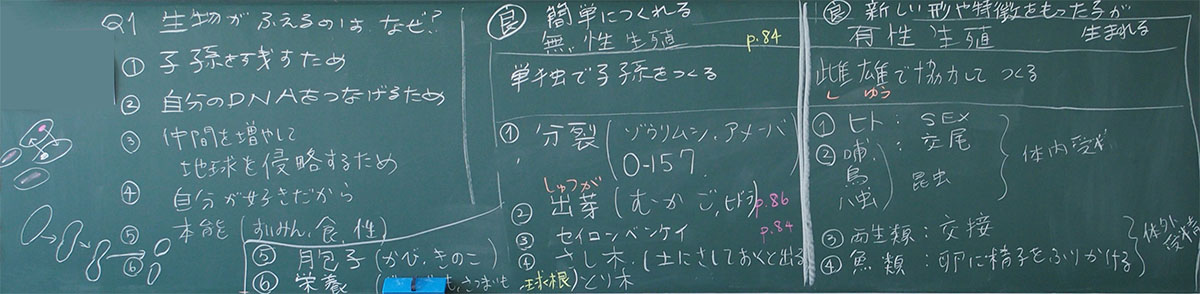 Q1 生物が ふえるのは なぜ?
① 子孫を残すため
② 自分のDNAをつなげるため
③ 仲間を増やして
地球を侵略するため
④ 自分が好きだから
⑤ 本能 (すいみん, 食, 性)
⑥
良 簡単につくれる
無性生殖 p.84
単独で子孫をつくる
① 分裂 (ゾウリムシ, アメーバ)
O-157
しゅつが
② 出芽 (むかご, ヒドラ) p.86
③ セイロンベンケイ p.84
④ さし木 (土にさしておくと出る
⑤ 胞子 (かび, きのこ)
⑥ 栄養 も, さつまいも, 球根) とり木
良 新しい形や特徴をもった子が
生まれる
有性生殖
雌雄で協力して つくる
し ゆう
① ヒト : SEX
② 哺, : 交尾
鳥
ハ虫 昆虫
体内受精
③ 両生類 : 交接
④ 魚類 : 卵に精子をふりかける
体外受精